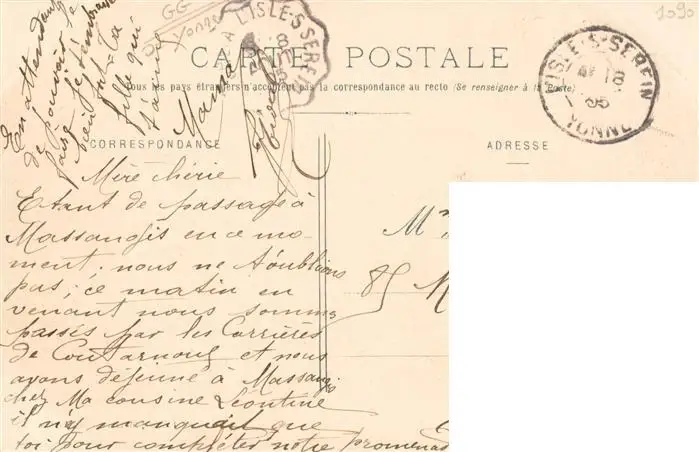 GG
Yonne
1090
L'ISLE-S-SEREIN
CARTE POSTALE
Tous les pays étrangers n'acceptent pas la correspondance au recto (Se renseigner à la Poste)
L'ISLE-S-SEREIN
18
05
YONNE
CORRESPONDANCE
ADRESSE
Mère chérie
Etant de passage à
Massangis en ce mo-
ment; nous ne t'oublions
pas; ce matin en
venant nous sommes
passés par les Carrières
de Coutarnoux et nous
avons déjeuné à Massangis
chez Ma cousine Léontine
il n'y manquait que
toi pour compléter notre promenade
En attendant
de pouvoir le
faire je t'embrasse
bien fort Ta
fille qui
t'aime
Maria
M
85